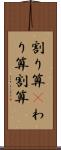 割り算わ
り算割算